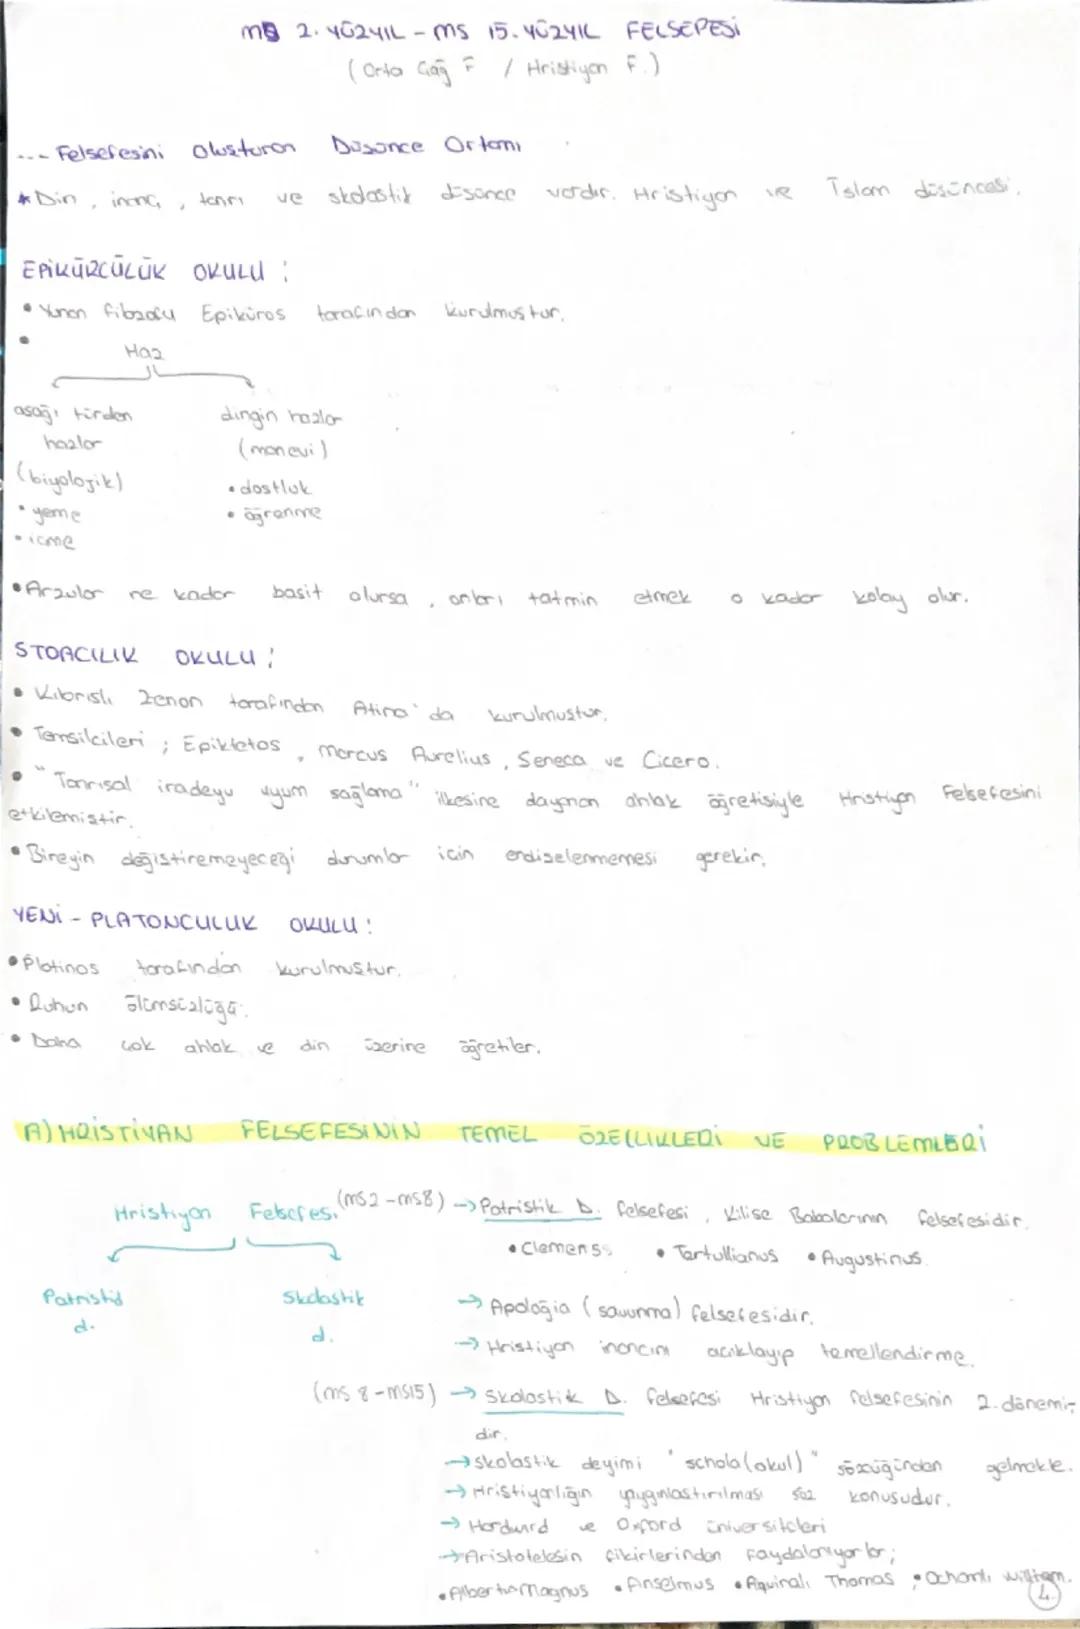 MS 2. YÜZYIL - MS 15. YÜZYIL FELSEFESİ
(Orta Çağ F / Hristiyan F.)
--- Felsefesini Oluşturan Düşünce Ortamı
* Din, inanç, tanrı ve skolastik düşünce vardır. Hristiyan ve İslam düşüncesi.
EPİKÜRCÜLÜK OKULU :
• Yunan filozofu Epiküros tarafından kurulmuştur.
•
Haz
aşağı türden dingin hazlar
hazlar (manevi)
(biyolojik) • dostluk
• yeme • öğrenme
• içme
• Arzular ne kadar basit olursa, onları tatmin etmek o kadar kolay olur.
STOACILIK OKULU :
• Kıbrıslı Zenon tarafından Atina'da kurulmuştur.
• Temsilcileri ; Epiktetos, Marcus Aurelius, Seneca ve Cicero.
• "Tanrısal iradeyu uyum sağlama" ilkesine dayanan ahlak öğretisiyle Hristiyan Felsefesini
etkilemiştir.
• Bireyin değiştiremeyeceği durumlar için endişelenmemesi gerekir.
YENİ - PLATONCULUK OKULU :
• Plotinos tarafından kurulmuştur.
• Ruhun ölümsüzlüğü.
• Daha çok ahlak ve din üzerine öğretiler.
A) HRİSTİYAN FELSEFESİNİN TEMEL ÖZELLİKLERİ VE PROBLEMLERİ
Hristiyan Felsefesi (MS2 - MS8) → Patristik D. felsefesi, Kilise Babalarının felsefesidir.
• Clemens • Tertullianus • Augustinus
Patristik d. Skolastik d.
→ Apologia (savunma) felsefesidir.
→ Hristiyan inancını açıklayıp temellendirme.
(MS 8 - MS15) → Skolastik D. felsefesi Hristiyan felsefesinin 2. dönemi-
dir.
→ skolastik deyimi "schola (okul)" sözcüğünden gelmekte.
→ Hristiyanlığın yaygınlaştırılması söz konusudur.
→ Hardvard ve Oxford üniversiteleri
→ Aristotelesin fikirlerinden faydalanıyorlar ;
• Albertus Magnus • Anselmus • Aquinalı Thomas • Ockhamlı William.
4.